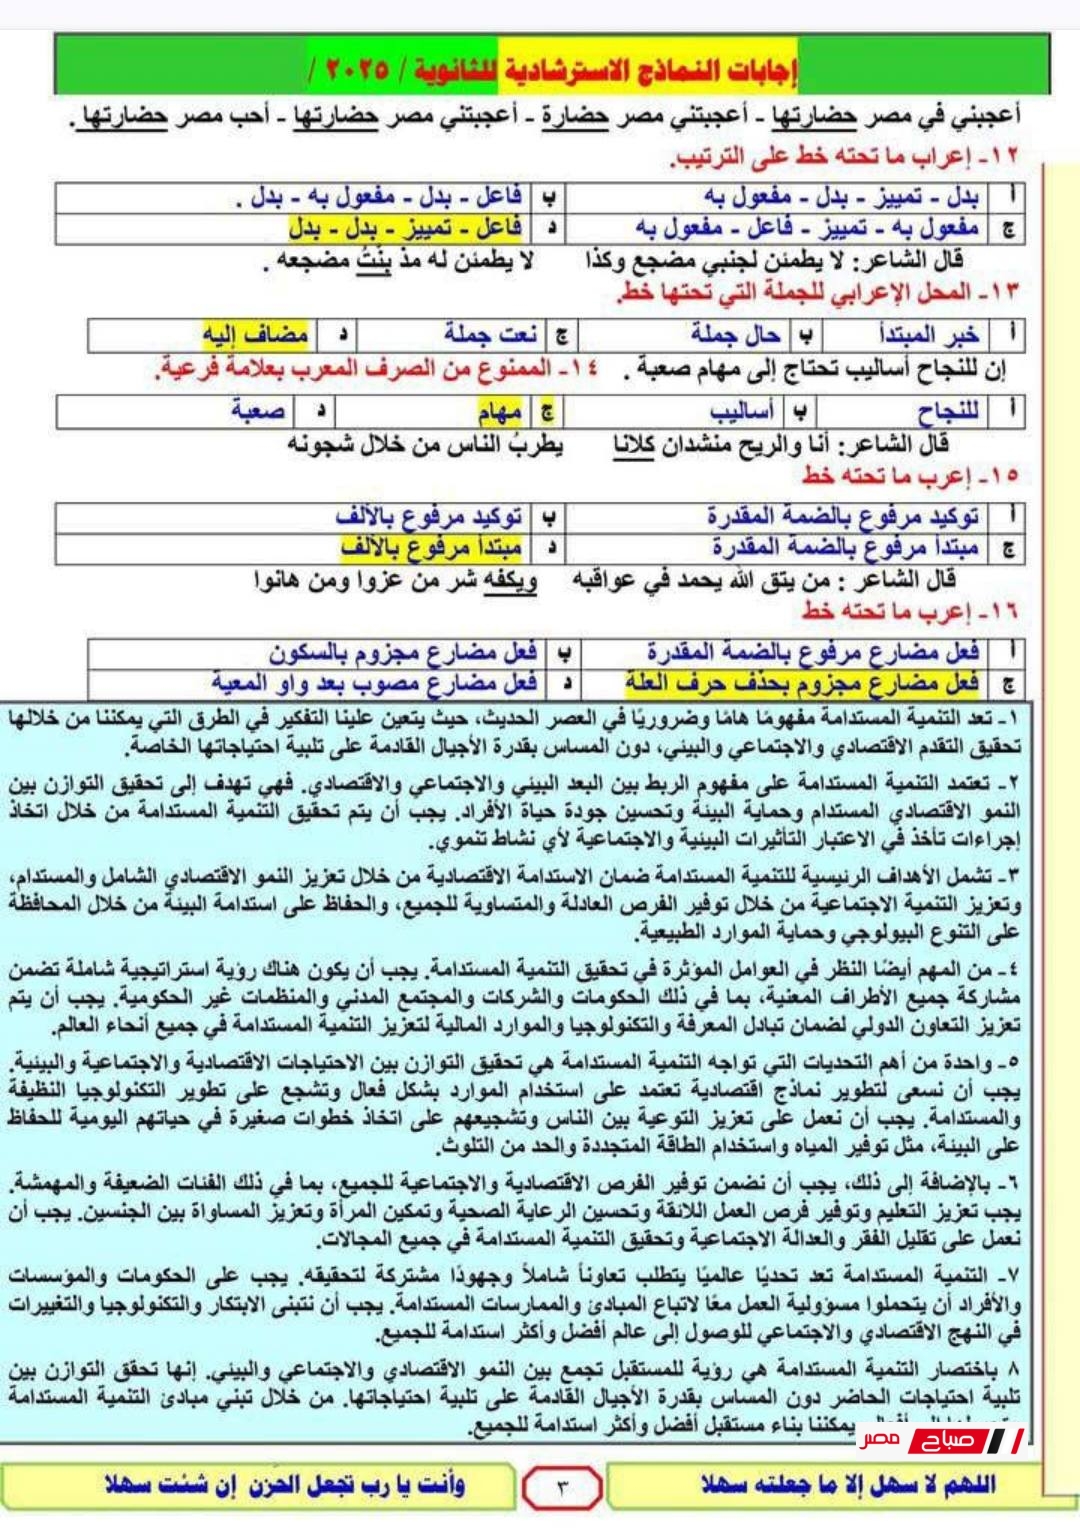 إجابات النماذج الاسترشادية للثانوية / ٢٠٢٥ /
أعجبني في مصر حضارتها - أعجبتني مصر حضارة - أعجبتني مصر حضارتها - أحب مصر حضارتها .
١٢- إعراب ما تحته خط على الترتيب.
أ بدل - تمييز - بدل - مفعول به ب فاعل - بدل - مفعول به - بدل .
ج مفعول به - تمييز - فاعل - مفعول به د فاعل - تمييز - بدل - بدل
قال الشاعر: لا يطمئن لجنبي مضجع وكذا لا يطمئن له مذ بِنْتُ مضجعه .
١٣- المحل الإعرابي للجملة التي تحتها خط.
أ خبر المبتدأ ب حال جملة ج نعت جملة د مضاف إليه
إن للنجاح أساليب تحتاج إلى مهام صعبة . ١٤- الممنوع من الصرف المعرب بعلامة فرعية.
أ للنجاح ب أساليب ج مهام د صعبة
قال الشاعر: أنا والريح منشدان كلانا يطربُ الناس من خلال شجونه
١٥- إعرب ما تحته خط
أ توكيد مرفوع بالضمة المقدرة ب توكيد مرفوع بالألف
ج مبتدأ مرفوع بالضمة المقدرة د مبتدأ مرفوع بالألف
قال الشاعر : من يتق الله يحمد في عواقبه ويكفه شر من عزوا ومن هانوا
١٦- إعرب ما تحته خط
أ فعل مضارع مرفوع بالضمة المقدرة ب فعل مضارع مجزوم بالسكون
ج فعل مضارع مجزوم بحذف حرف العلة د فعل مضارع مصوب بعد واو المعية
١- تعد التنمية المستدامة مفهومًا هامًا وضروريًا في العصر الحديث، حيث يتعين علينا التفكير في الطرق التي يمكننا من خلالها
تحقيق التقدم الاقتصادي والاجتماعي والبيئي، دون المساس بقدرة الأجيال القادمة على تلبية احتياجاتها الخاصة.
٢- تعتمد التنمية المستدامة على مفهوم الربط بين البعد البيئي والاجتماعي والاقتصادي. فهي تهدف إلى تحقيق التوازن بين
النمو الاقتصادي المستدام وحماية البيئة وتحسين جودة حياة الأفراد. يجب أن يتم تحقيق التنمية المستدامة من خلال اتخاذ
إجراءات تأخذ في الاعتبار التأثيرات البيئية والاجتماعية لأي نشاط تنموي.
٣- تشمل الأهداف الرئيسية للتنمية المستدامة ضمان الاستدامة الاقتصادية من خلال تعزيز النمو الاقتصادي الشامل والمستدام،
وتعزيز التنمية الاجتماعية من خلال توفير الفرص العادلة والمتساوية للجميع، والحفاظ على استدامة البيئة من خلال المحافظة
على التنوع البيولوجي وحماية الموارد الطبيعية.
٤- من المهم أيضًا النظر في العوامل المؤثرة في تحقيق التنمية المستدامة. يجب أن يكون هناك رؤية استراتيجية شاملة تضمن
مشاركة جميع الأطراف المعنية، بما في ذلك الحكومات والشركات والمجتمع المدني والمنظمات غير الحكومية. يجب أن يتم
تعزيز التعاون الدولي لضمان تبادل المعرفة والتكنولوجيا والموارد المالية لتعزيز التنمية المستدامة في جميع أنحاء العالم.
٥- واحدة من أهم التحديات التي تواجه التنمية المستدامة هي تحقيق التوازن بين الاحتياجات الاقتصادية والاجتماعية والبيئية.
يجب أن نسعى لتطوير نماذج اقتصادية تعتمد على استخدام الموارد بشكل فعال وتشجع على تطوير التكنولوجيا النظيفة
والمستدامة. يجب أن نعمل على تعزيز التوعية بين الناس وتشجيعهم على اتخاذ خطوات صغيرة في حياتهم اليومية للحفاظ
على البيئة، مثل توفير المياه واستخدام الطاقة المتجددة والحد من التلوث.
٦- بالإضافة إلى ذلك، يجب أن نضمن توفير الفرص الاقتصادية والاجتماعية للجميع، بما في ذلك الفئات الضعيفة والمهمشة.
يجب تعزيز التعليم وتوفير فرص العمل اللائقة وتحسين الرعاية الصحية وتمكين المرأة وتعزيز المساواة بين الجنسين. يجب أن
نعمل على تقليل الفقر والعدالة الاجتماعية وتحقيق التنمية المستدامة في جميع المجالات.
٧- التنمية المستدامة تعد تحديًا عالميًا يتطلب تعاوناً شاملاً وجهودًا مشتركة لتحقيقه. يجب على الحكومات والمؤسسات
والأفراد أن يتحملوا مسؤولية العمل معًا لاتباع المبادئ والممارسات المستدامة. يجب أن نتبنى الابتكار والتكنولوجيا والتغييرات
في النهج الاقتصادي والاجتماعي للوصول إلى عالم أفضل وأكثر استدامة للجميع.
٨ باختصار التنمية المستدامة هي رؤية للمستقبل تجمع بين النمو الاقتصادي والاجتماعي والبيئي. إنها تحقق التوازن بين
تلبية احتياجات الحاضر دون المساس بقدرة الأجيال القادمة على تلبية احتياجاتها. من خلال تبني مبادئ التنمية المستدامة
يمكننا بناء مستقبل أفضل وأكثر استدامة للجميع.
صباح مصر
اللهم لا سهل إلا ما جعلته سهلا ٣ وأنت يا رب تجعل الحَزن إن شئت سهلا